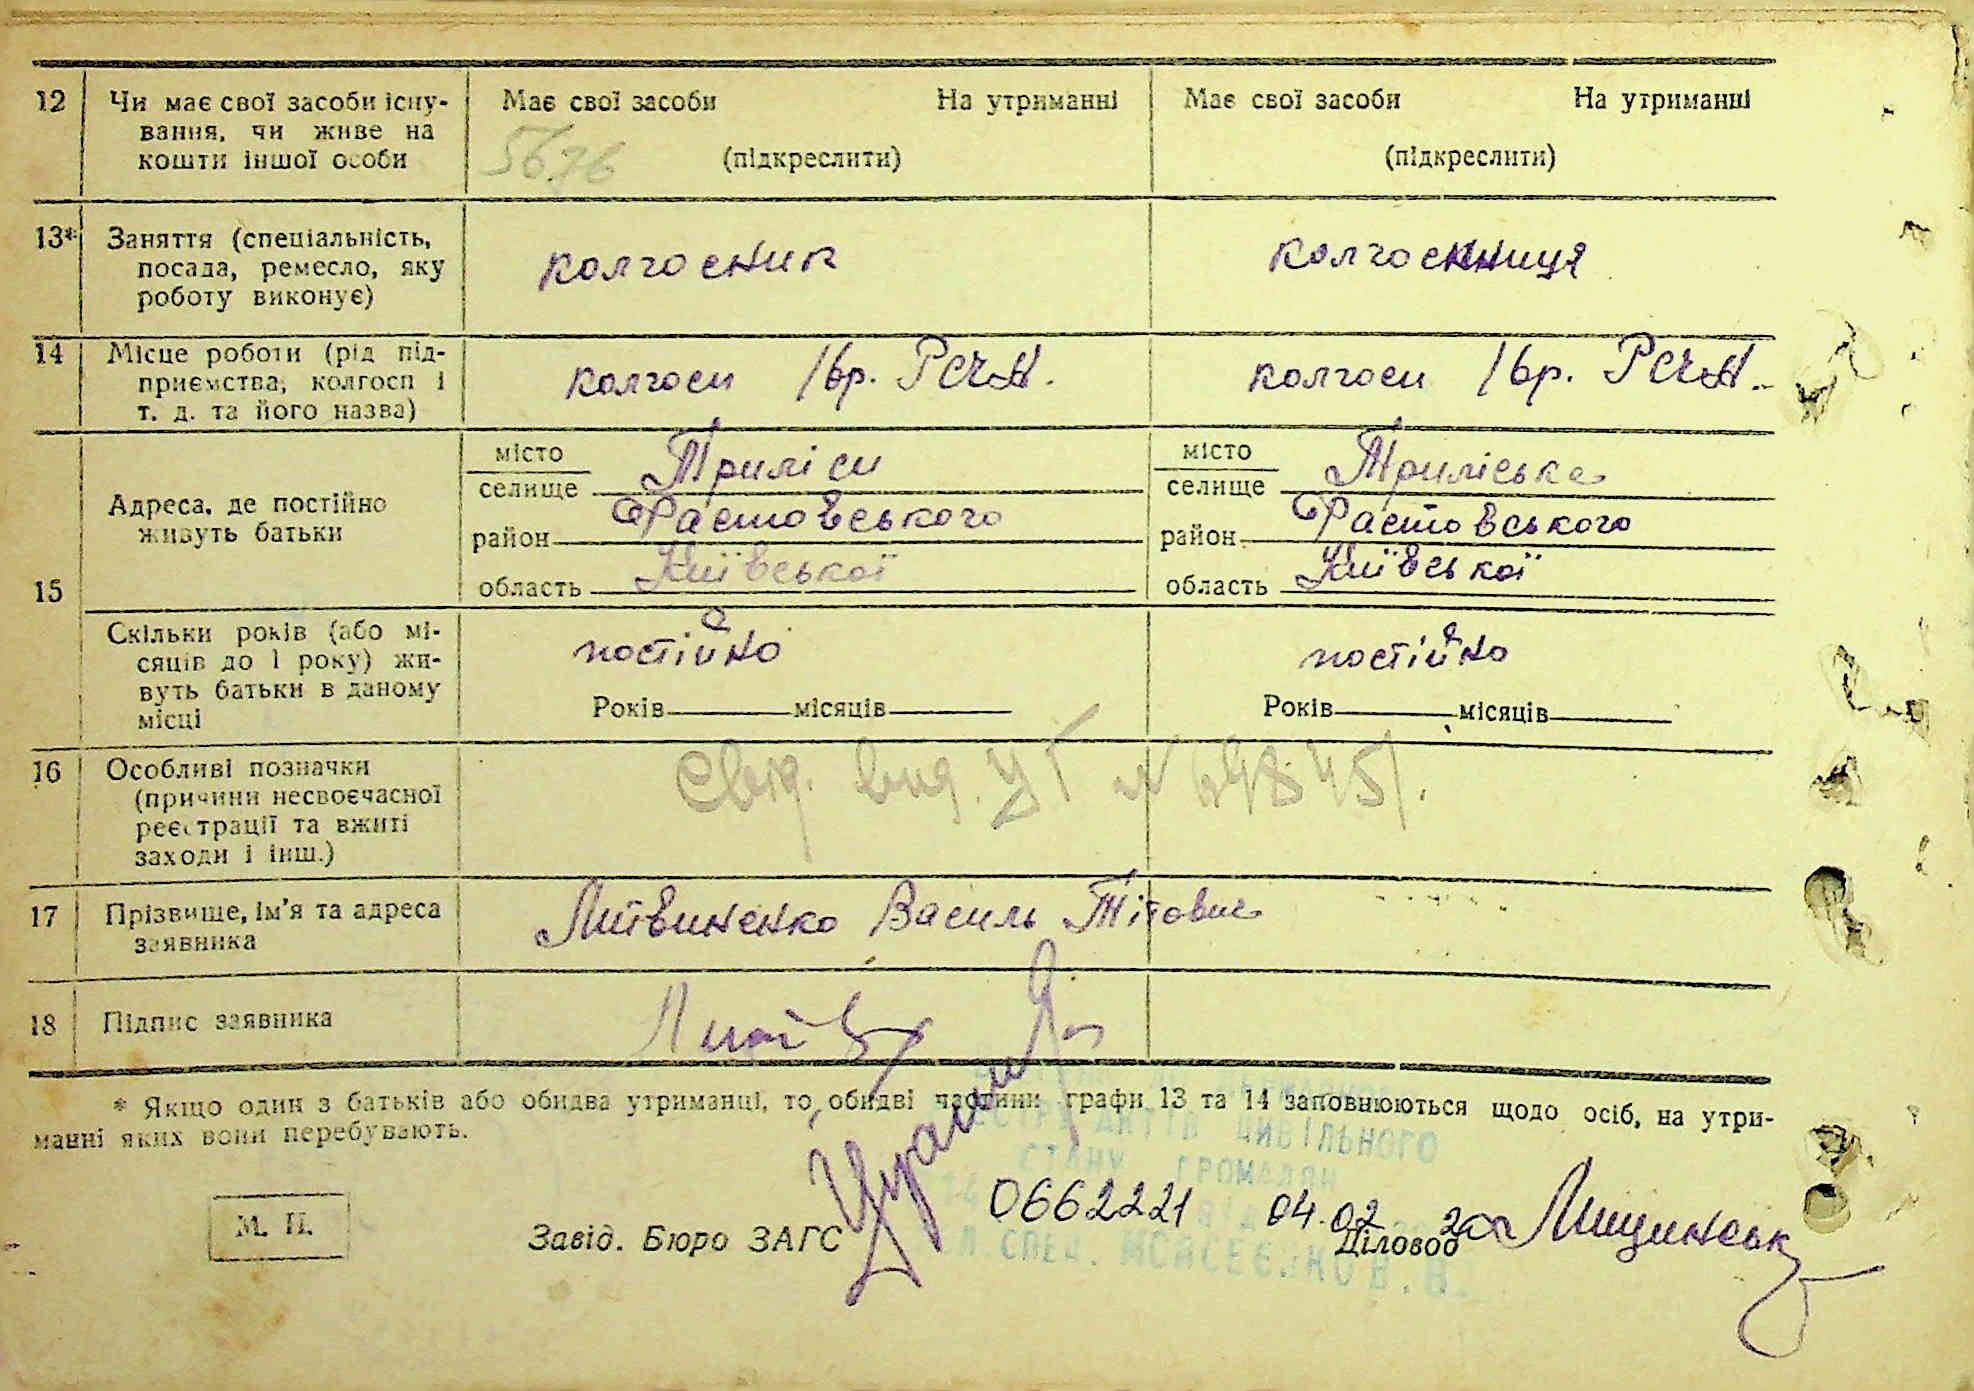 12 Чи має свої засоби існу- Має свої засоби На утриманні Має свої засоби На утриманні
вання, чи живе на
кошти іншої особи 5676 (підкреслити) (підкреслити)
13* Заняття (спеціальність,
посада, ремесло, яку колгосник колгосниця
роботу виконує)
14 Місце роботи (рід під-
приємства, колгосп і колгосп Iбр. РСЧА. колгосп Iбр. РСЧА.
т. д. та його назва)
15 Адреса, де постійно
живуть батьки
місто
селище Триліси
район Фастовського
область Київської
місто
селище Триліське
район Фастовського
область Київської
Скільки років (або мі-
сяців до 1 року) жи- постійно постійно
вуть батьки в даному
місці Років місяців Років місяців
16 Особливі позначки
(причини несвоєчасної Свід. вид. УГ №
реєстрації та вжиті
заходи і інш.)
17 Прізвище, ім'я та адреса Литвиненко Василь Тітович
заявника
18 Підпис заявника
* Якщо один з батьків або обидва утриманці, то обидві частини графи 13 та 14 заповнюються щодо осіб, на утри-
манні яких вони перебувають.
ЦИВІЛЬНОГО
СТАНУ ГРОМАДЯН
0662221 04.02
М. П. Завід. Бюро ЗАГС Діловод
СПЕЦ.